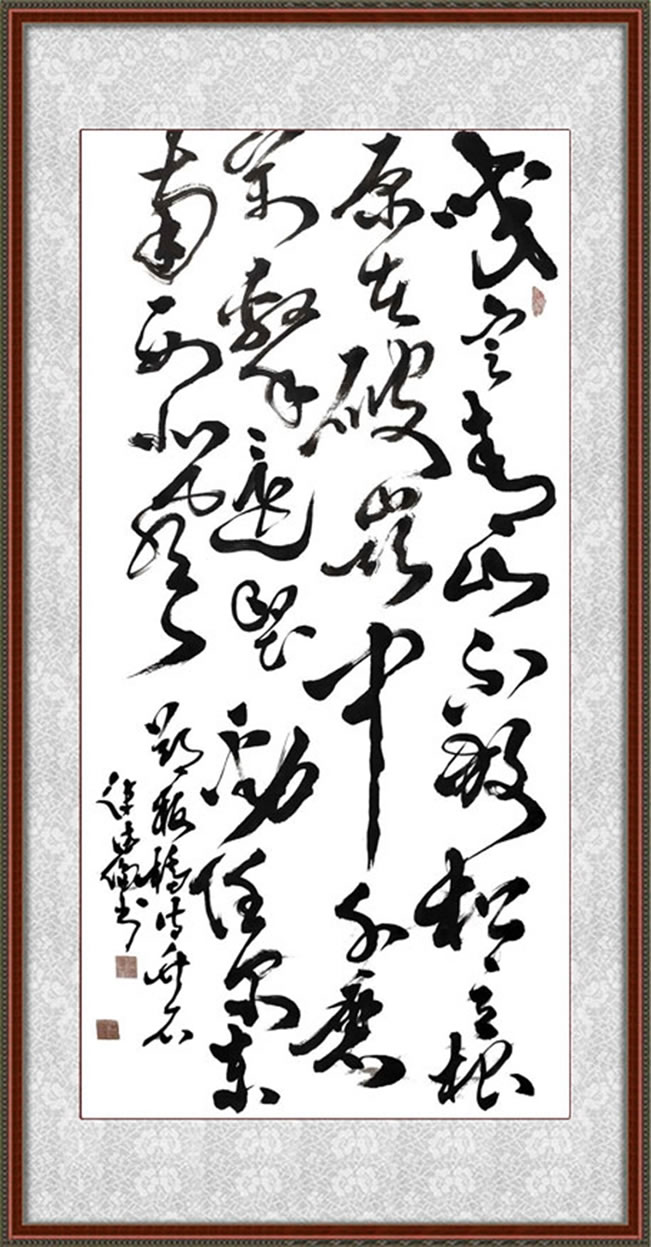 咬定青山不放松立根
原在破岩中千磨
萬擊還堅劲任尔东
南西北風
郑板桥诗竹石
徐
书